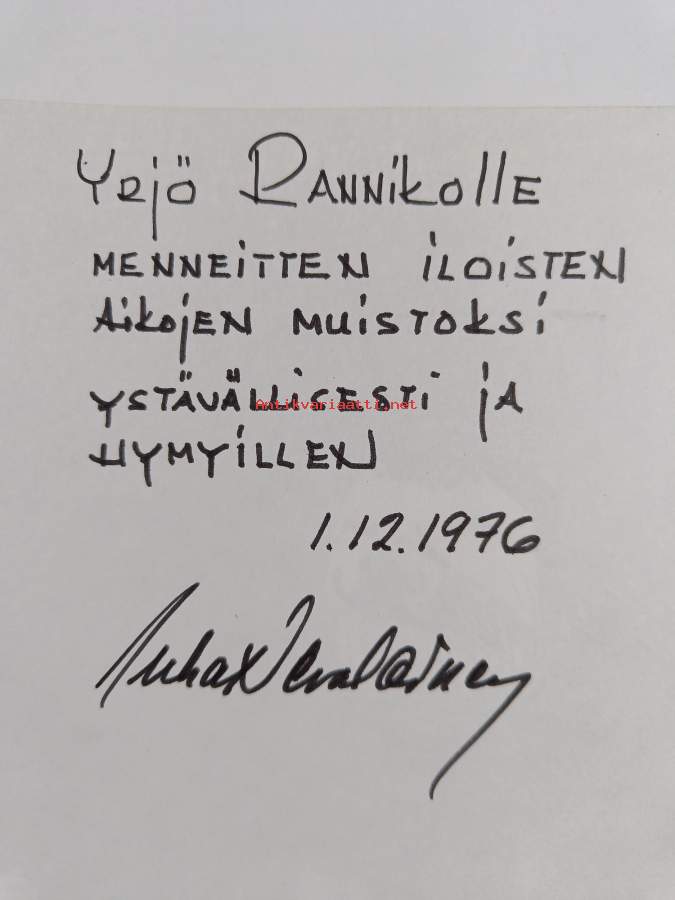 Yrjö Rannikolle
menneitten iloisten
Aikojen muistoksi
ystävällisesti ja
Antikvariaatti.net
hymyillen
1.12.1976
Juha Nevalainen